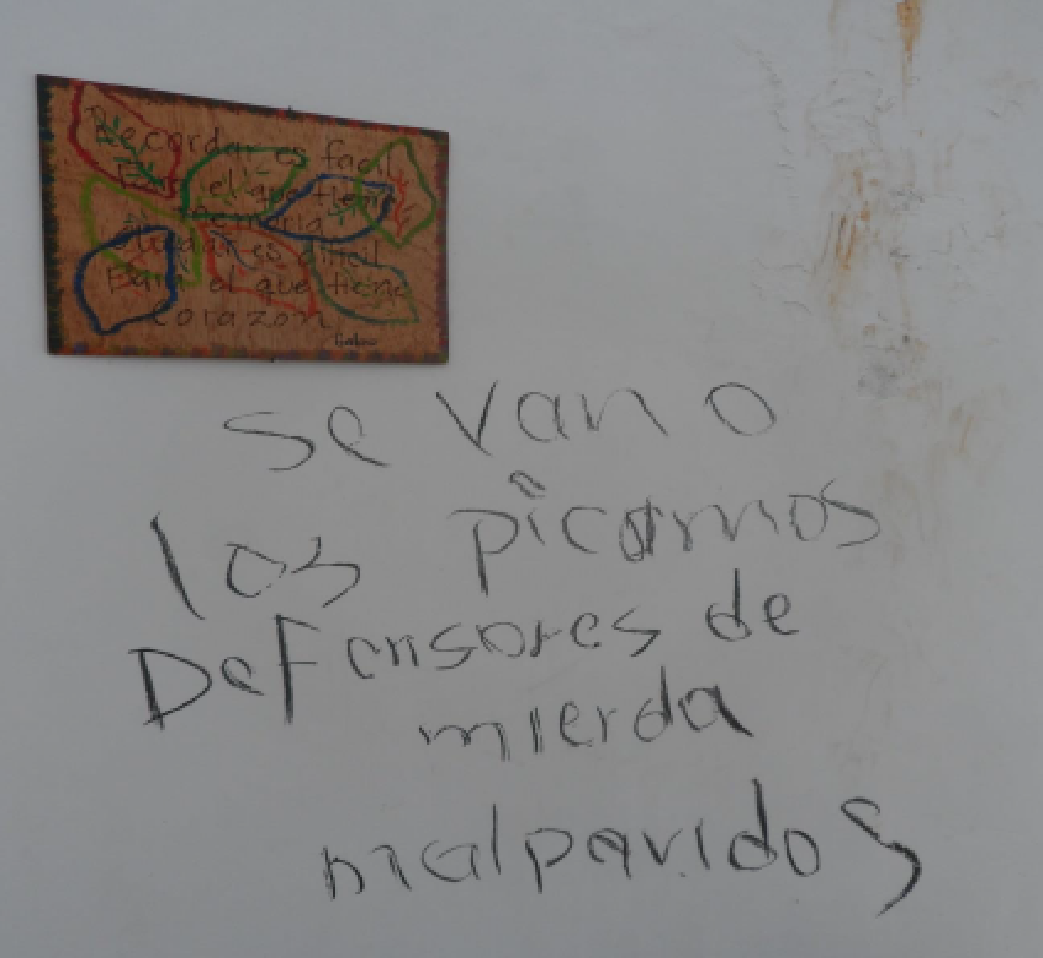 Recordar es facil
Para el que tiene
memoria
olvidar es dificil
Para el que tiene
Corazon
se van o
los picamos
DeFensores de
mierda
malparidos